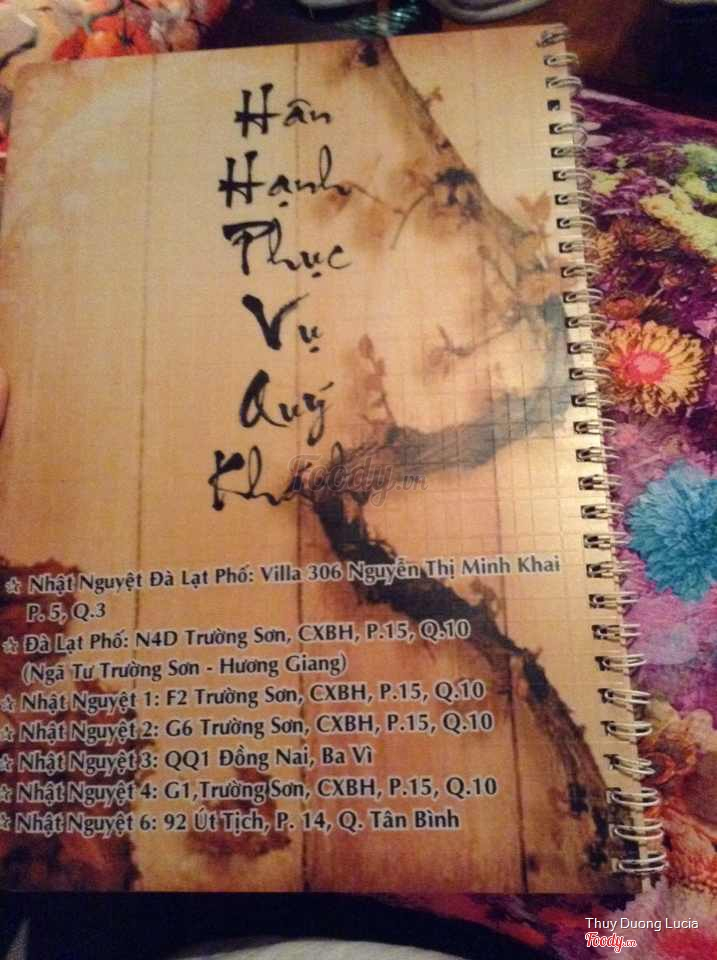 Hân
Hạnh
Phục
Vụ
Quý
Khách
Foody.vn
☆ Nhật Nguyệt Đà Lạt Phố: Villa 306 Nguyễn Thị Minh Khai
P. 5, Q.3
☆ Đà Lạt Phố: N4D Trường Sơn, CXBH, P.15, Q.10
(Ngã Tư Trường Sơn - Hương Giang)
☆ Nhật Nguyệt 1: F2 Trường Sơn, CXBH, P.15, Q.10
☆ Nhật Nguyệt 2: G6 Trường Sơn, CXBH, P.15, Q.10
☆ Nhật Nguyệt 3: QQ1 Đồng Nai, Ba Vì
☆ Nhật Nguyệt 4: G1,Trường Sơn, CXBH, P.15, Q.10
☆ Nhật Nguyệt 6: 92 Út Tịch, P. 14, Q. Tân Bình
Thuy Duong Lucia
Foody.vn